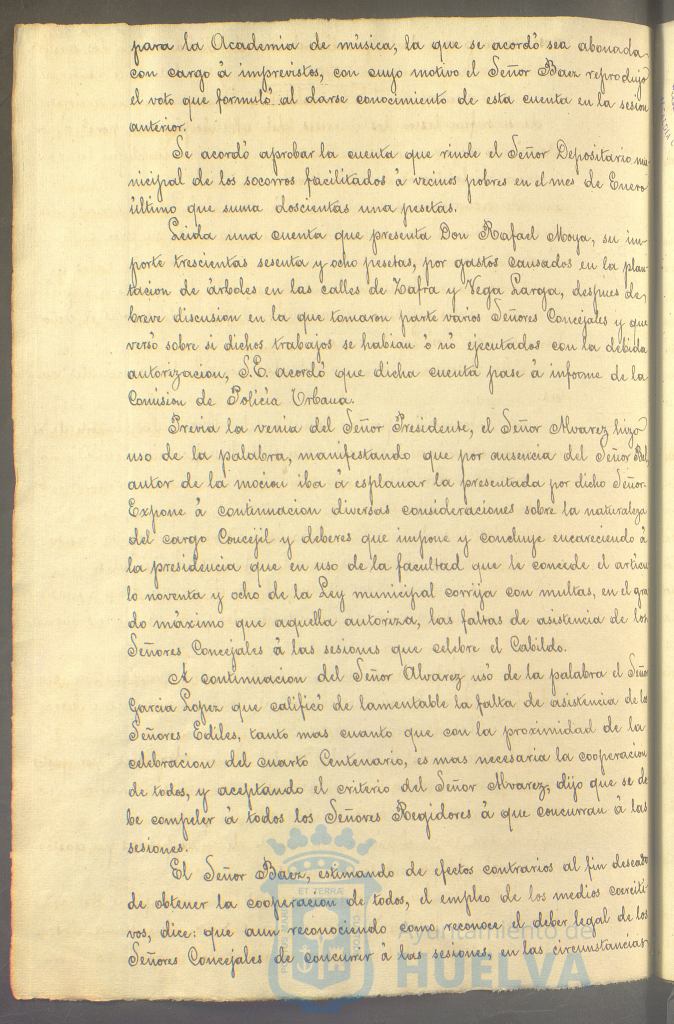 para la Academia de música, la que se acordó sea abonada
con cargo á imprevistos, con cuyo motivo el Señor Baez reprodujo
el voto que formuló al darse conocimiento de esta cuenta en la sesion
anterior.
Se acordó aprobar la cuenta que rinde el Señor Depositario mu-
nicipal de los socorros facilitados á vecinos pobres en el mes de Enero
último que suma doscientas una pesetas.
Leida una cuenta que presenta Don Rafael Moya, su im-
porte trescientas sesenta y ocho pesetas, por gastos causados en la plan-
tacion de árboles en las calles de Zafra y Vega Larga, despues de
breve discusion en la que tomaron parte varios Señores Concejales y que
versó sobre si dichos trabajos se habian ó nó ejecutados con la debida
autorizacion, S.E. acordó que dicha cuenta pase á informe de la
Comision de Policía Urbana.
Previa la venia del Señor Presidente, el Señor Alvarez hizo
uso de la palabra, manifestando que por ausencia del Señor Bel,
autor de la mocion iba á esplanar la presentada por dicho Señor.
Expone á continuacion diversas consideraciones sobre la naturaleza
del cargo Concejil y deberes que impone y concluye encareciendo á
la presidencia que en uso de la facultad que le concede el articu
lo noventa y ocho de la Ley municipal corrija con multas, en el gra
do máximo que aquella autoriza, las faltas de asistencia de los
Señores Concejales á las sesiones que celebre el Cabildo.
A continuacion del Señor Alvarez usó de la palabra el Señor
Garcia Lopez que calificó de lamentable la falta de asistencia de los
Señores Ediles, tanto mas cuanto que con la proximidad de la
celebracion del cuarto Centenario, es mas necesaria la cooperacion
de todos, y aceptando el criterio del Señor Alvarez, dijo que se de
be compeler á todos los Señores Regidores á que concurran á las
sesiones.
El Señor Baez, estimando de efectos contrarios al fin deseado
de obtener la cooperacion de todos, el empleo de los medios coerciti
vos, dice: que aun reconociendo como reconoce el deber legal de los
Señores Concejales de concurrir á las sesiones, en las circunstancias
ET TERRÆ
Ayuntamiento de
HUELVA